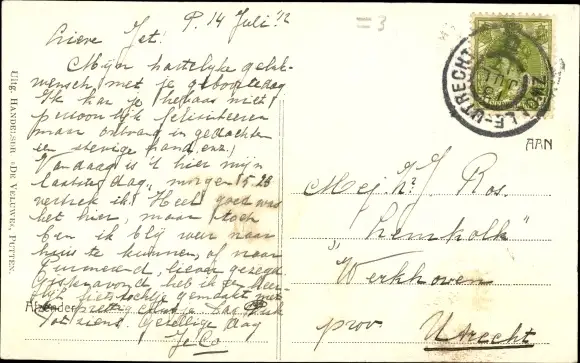 P. 14 Juli '12
Lieve Jet!
Mijn hartelijke geluk-
wensch met je geboortedag
Ik kan je helaas niet
persoonlijk feliciteeren
maar ontvang in gedachte
een stevige hand, enz.
Vandaag is 't hier mijn
laatste dag, morgen 5.28
vertrek ik. Heel goed was
het hier, maar toch
ben ik blij weer naar
huis te kunnen, of naar
Purmerend, liever gezegd
heb ik
fietstochtje gemaakt met
Afzender
Tot ziens Gezellige dag
Jo Co
Uitg. HANDELSER «DE VELUWE», PUTTEN.
=3
UTRECHT
AAN
Mej. n? J. J. Ros.
"
Werkhoven
prov. Utrecht